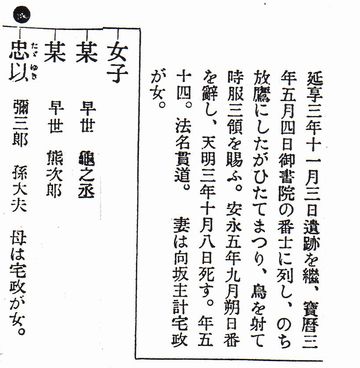 延享三年十一月三日遺跡を繼、寶曆三
年五月四日御書院の番士に列し、のち
放鷹にしたがひたてまつり、鳥を射て
時服三領を賜ふ。安永五年九月朔日番
を辭し、天明三年十月八日死す。年五
十四。法名貫道。　妻は向坂主計宅政
が女。
女子
某　早世　龜之丞
某　早世　熊次郎
忠以　彌三郎　孫大夫　母は宅政が女。
たゞゆき